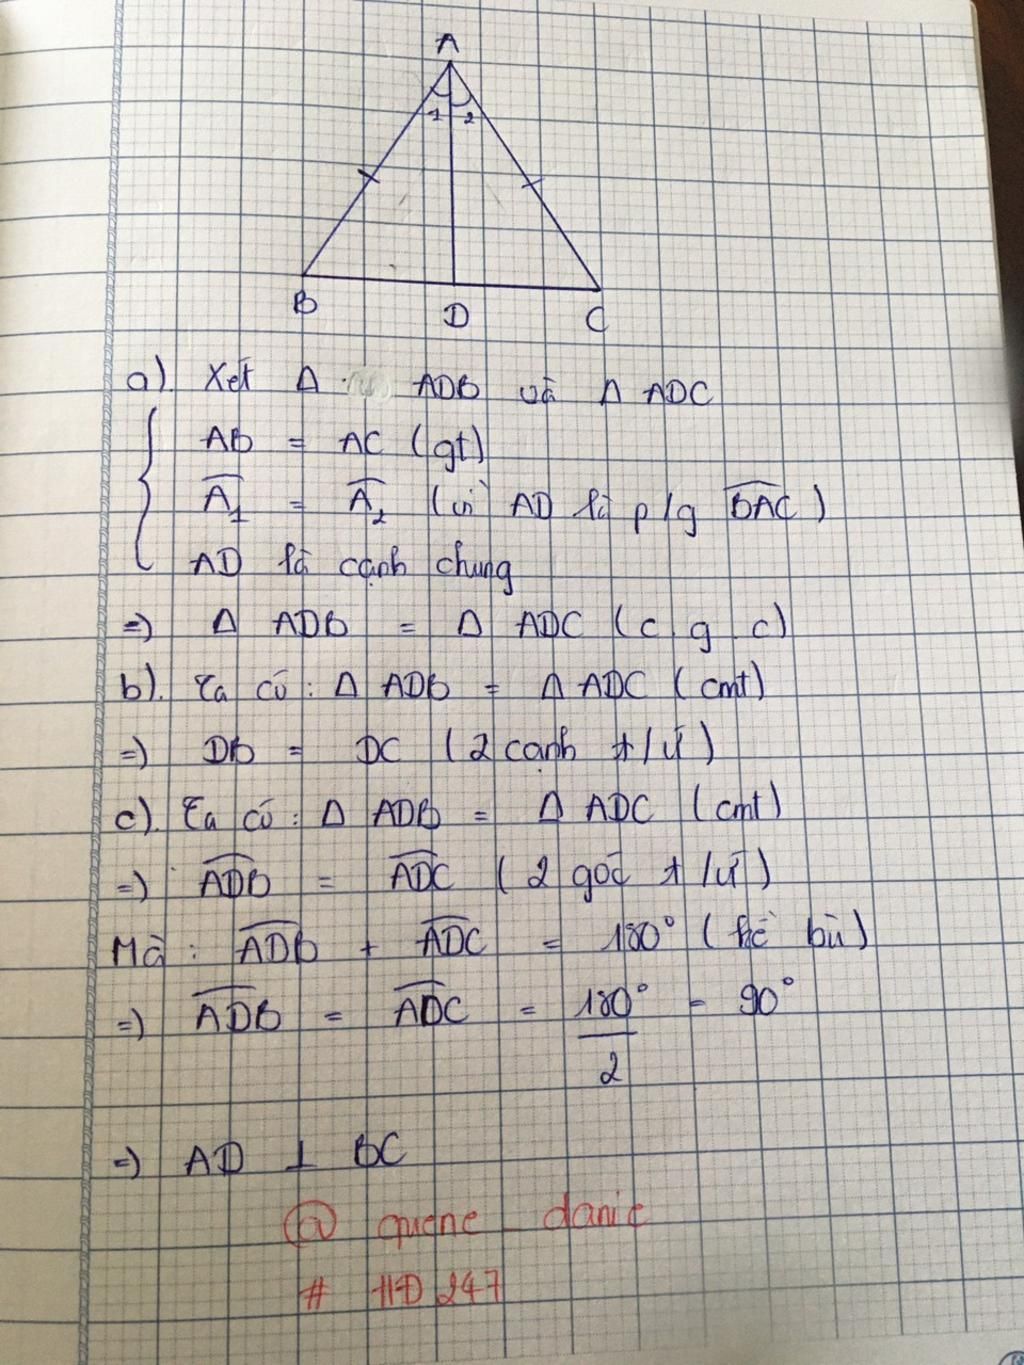 A
1 2
B D C
a). Xét Δ ADB và Δ ADC
AB = AC (gt)
Â₁ = Â₂ (vì AD là p/g BAC)
AD là cạnh chung
=) Δ ADB = Δ ADC (c g c)
b). Ta có : Δ ADB = Δ ADC (cmt)
=) DB = DC (2 cạnh t/ứ)
c). Ta có : Δ ADB = Δ ADC (cmt)
=) ADB = ADC (2 góc t/ứ)
Mà : ADB + ADC = 180° (kề bù)
=) ADB = ADC = 180°/2 = 90°
=) AD ⊥ BC
@ quene _ danie
# HD 247